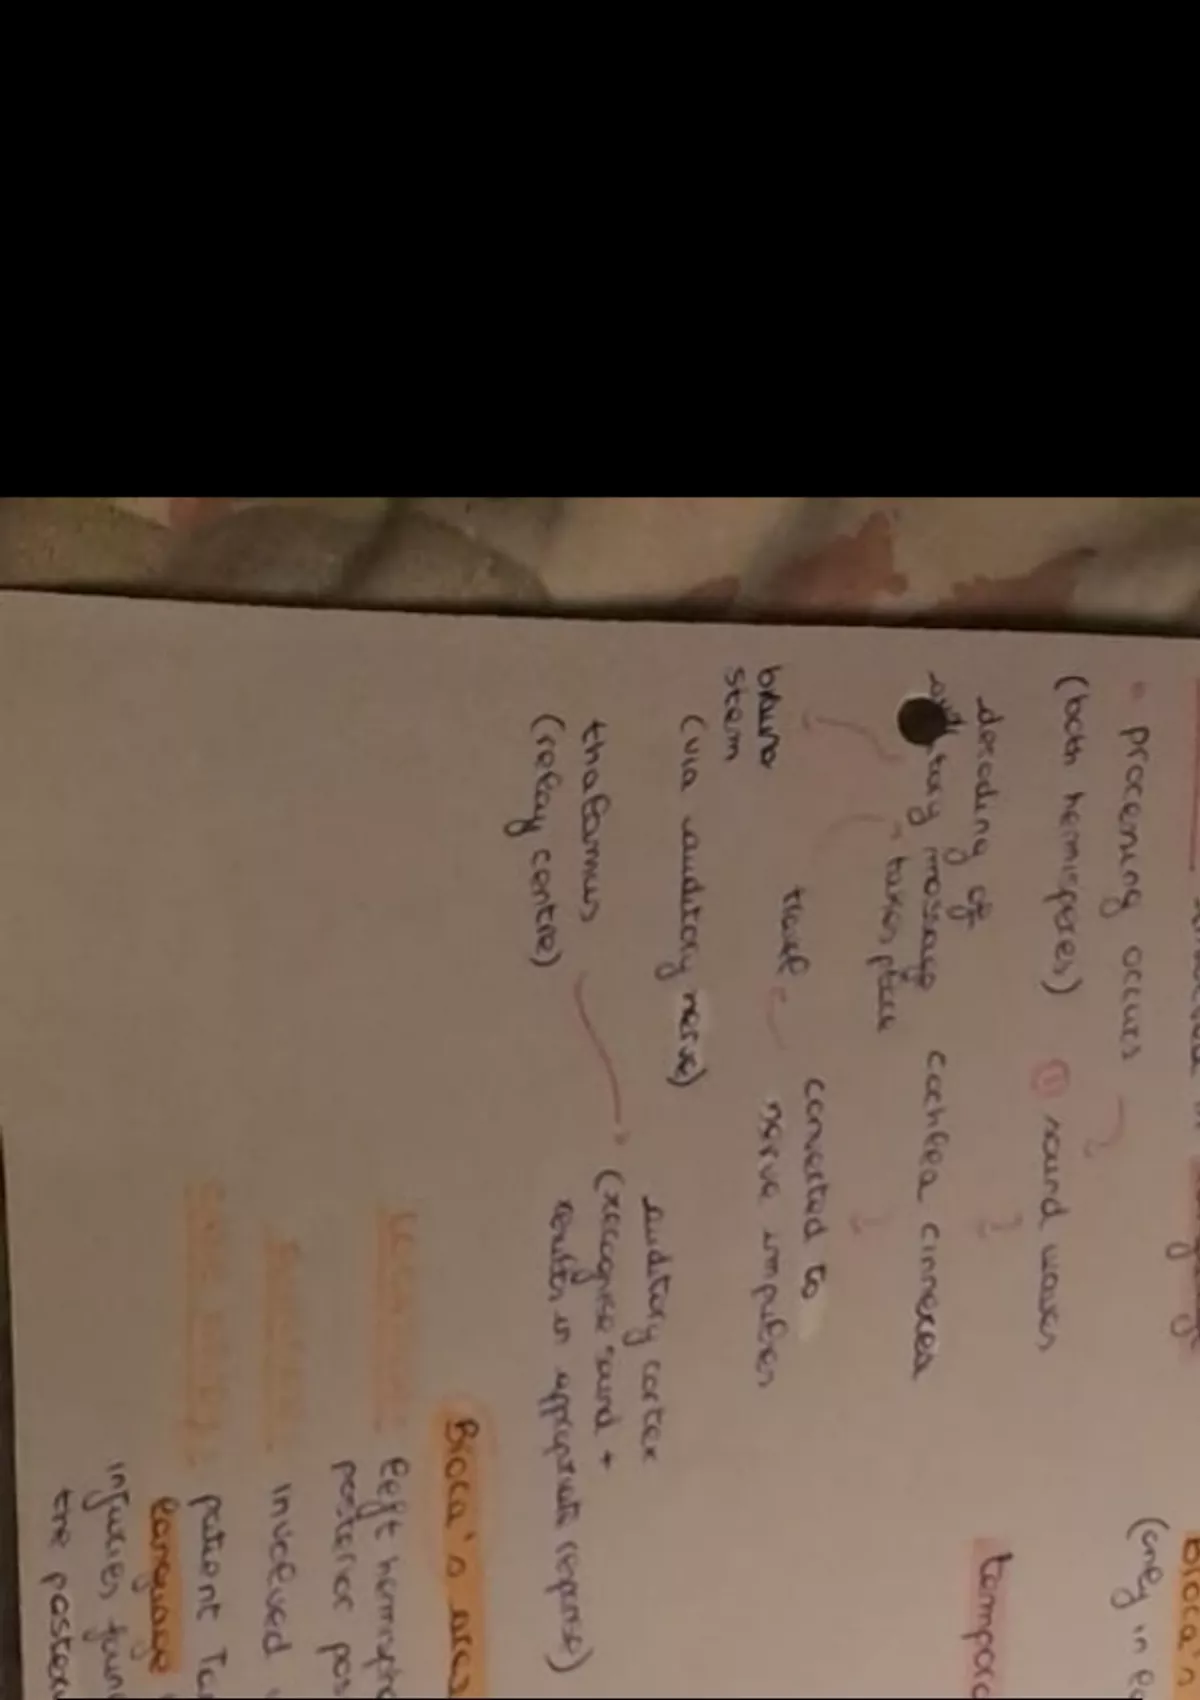 processing occurs
(both hemisperes)
① sound waves
decoding of
tory message
takes place
cochlea cinneres
converted to
nerve impulses
travel
brain
stem
(via auditory nerve)
thalamus
(relay centre)
auditory cortex
(recognise sound +
results in appropriate response)
Broca's
(only in
tempora
Broca's area
left hemisphe
posterior pos
involved
patient Ta
language
injuries foun
the posteri